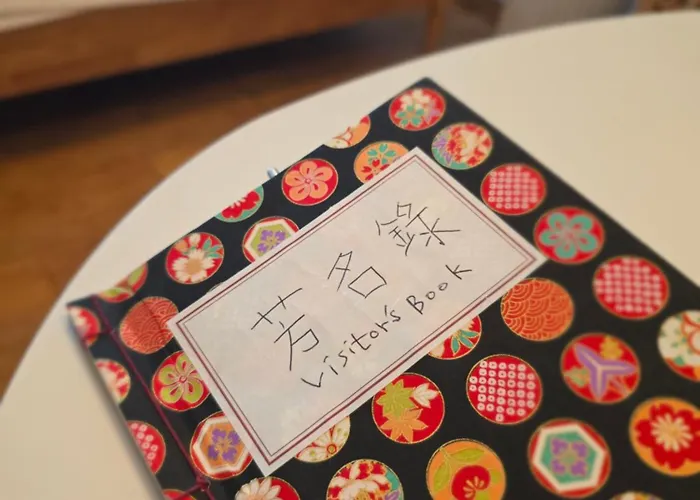 芳名録
Visitor's Book